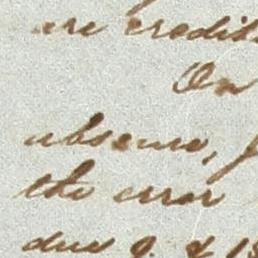 are credit
On
absence,
the error
due